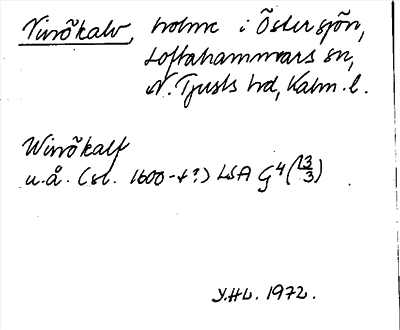 Vinökalv, holme i Östersjön,
Loftahammars sn,
N. Tjusts hd, Kalm. l.
Winökalf
u.å. (sl. 1600-t?) LSA G4 (13/3)
Y.HL. 1972.